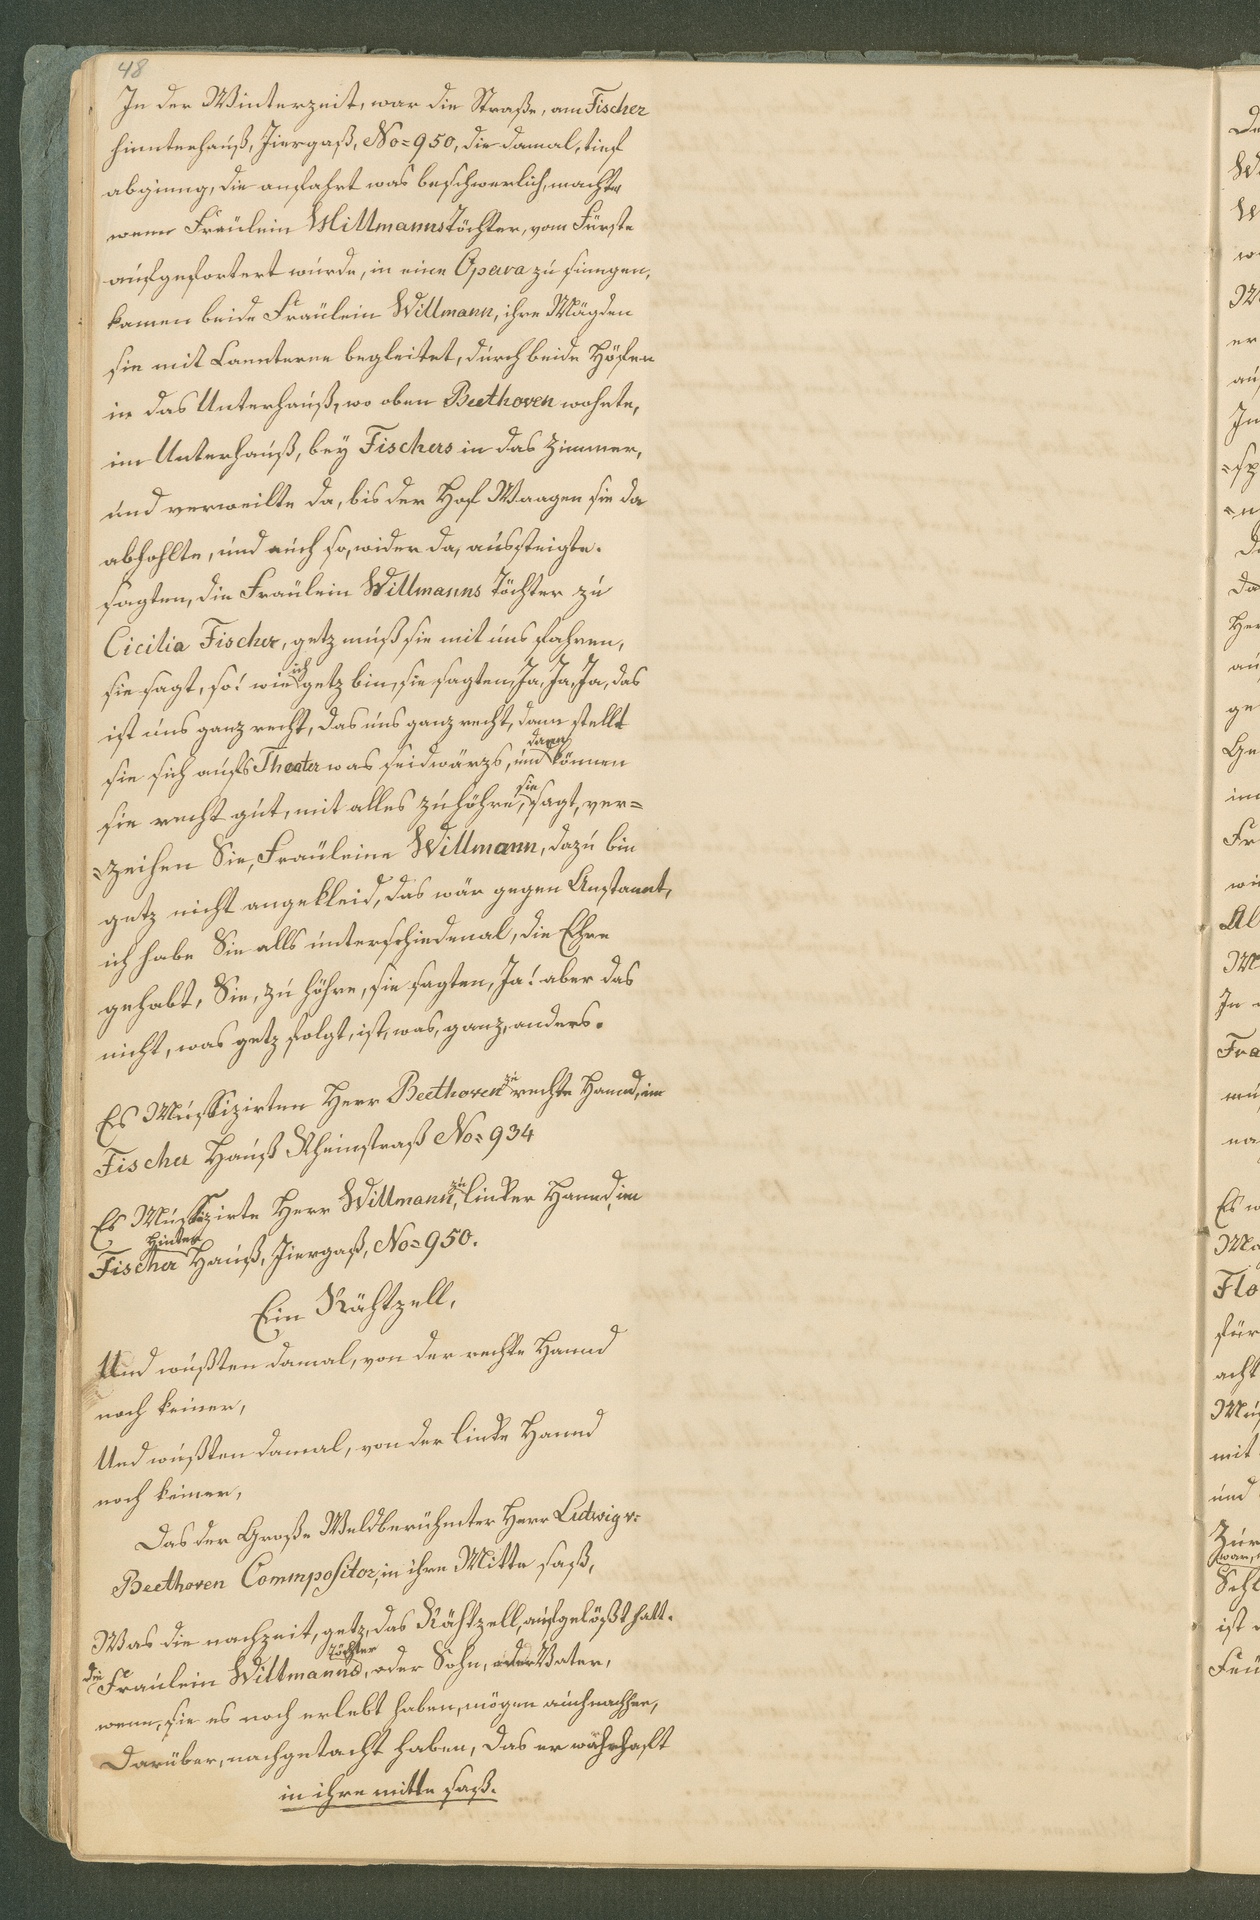 48
In der Winterzeit, war die Straße, am Fischer
hinnterhauß, Jiergaß, No=950, die damal, tief
abginng, die anfahrt was beschwerlich, machte
wenn Fräülein Willmanns Töchter, vom Fürste
aufgefortert wurde, in eine Opera zu sinngen,
kamen beide Fräulein Willmann, ihre Mägden
sie mit Lannterne begleitet, durch beide Höfen
in das Unterhauß, wo oben Beethoven wohnte,
im Unterhauß, bey Fischers in das Zimmer,
und verweilte da, bis der Hof Waagen sie da
abhohlte, und auch so, wider da, aussteigte.
sagten, die Fraülein Willmanns Töchter zu
Cicilia Fischer, getz muß sie mit uns fahren,
sie sagt, so! wie ich getz bin, sie sagten, Ja, Ja, Ja, das
ist uns ganz recht, das uns ganz recht, dann stellt
sie sich aufs Theater was seidwärzs, und dann können
sie recht gut, mit alles zuhöhre, sie sagt, ver=
=zeihen Sie, Fraüleine Willmann, dazu bin
getz nicht angekleid, das wär gegen Anstannt,
ich habe Sie alls unterschiedenal, die Ehre
gehabt, Sie, zu höhre, sie sagten, Ja! aber das
nicht, was getz folgt, ist, was, ganz, anders.
Es Mussizirten Herr Beethoven zu rechte Hannd, im
Fischer Hauß Rheinstraß No=934
Es Mussizirte Herr Willmann, zu linker Hannd, im
Fischer Hinter Hauß, Jiergaß, No=950.
Ein Rähtzell,
Und wußten damal, von der rechte Hannd
noch keiner,
Und wußten damal, von der linke Hannd
noch keiner,
Das der Große Weldberühmter Herr Ludwig v:
Beethoven Commpositor, in ihre Mitte saß,
Was die nachzeit, getz, das Rähtzell, aufgelößt hatt.
die Fraülein Willmanns Töchter, oder Sohn, oder Vater,
wenn, sie es noch erlebt haben, mögen auch nachher,
Darüber, nachgetacht haben, Das er währhaft
in ihre mitte saß.